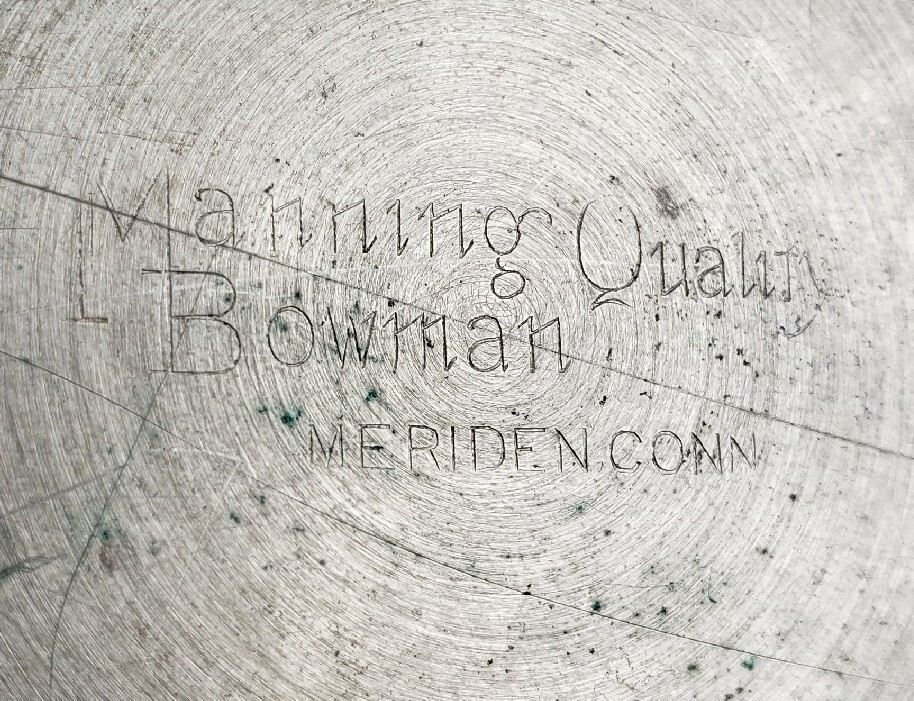 Manning Quality
Bowman
MERIDEN, CONN